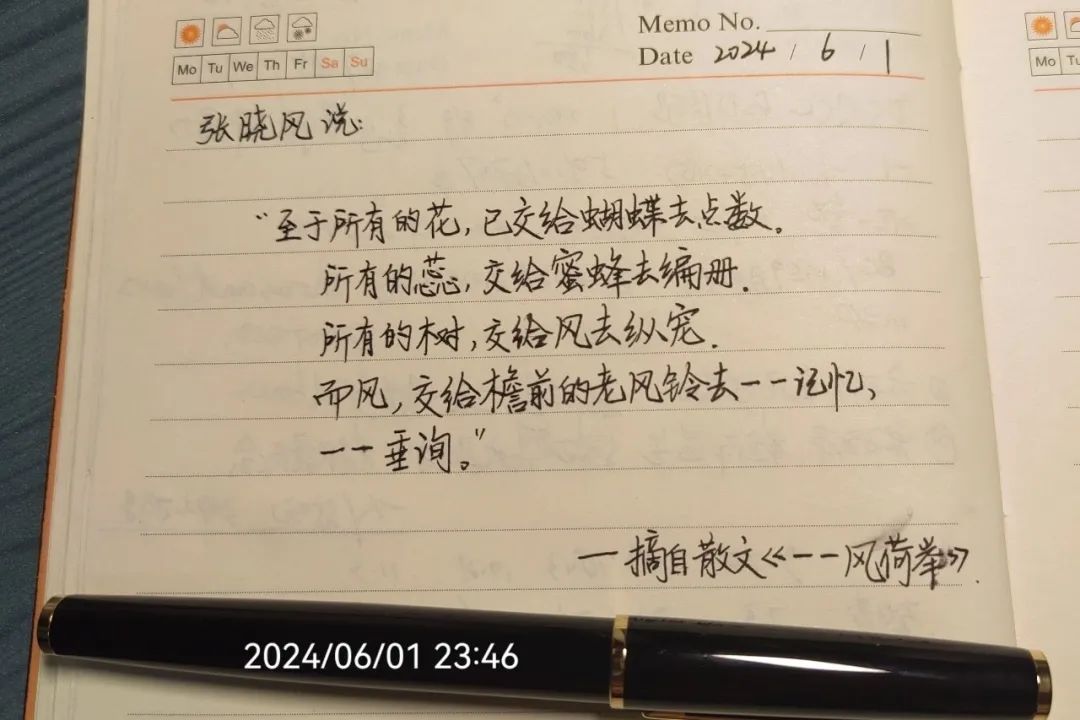 Memo No.
Date 2024 / 6 / 1
Mo Tu We Th Fr Sa Su
Mo
张晓风说:
“至于所有的花,已交给蝴蝶去点数。
所有的蕊,交给蜜蜂去编册.
所有的树,交给风去纵宠.
而风,交给檐前的老风铃去一一记忆、
一一垂询。”
—摘自散文《一一风荷举》.
2024/06/01 23:46